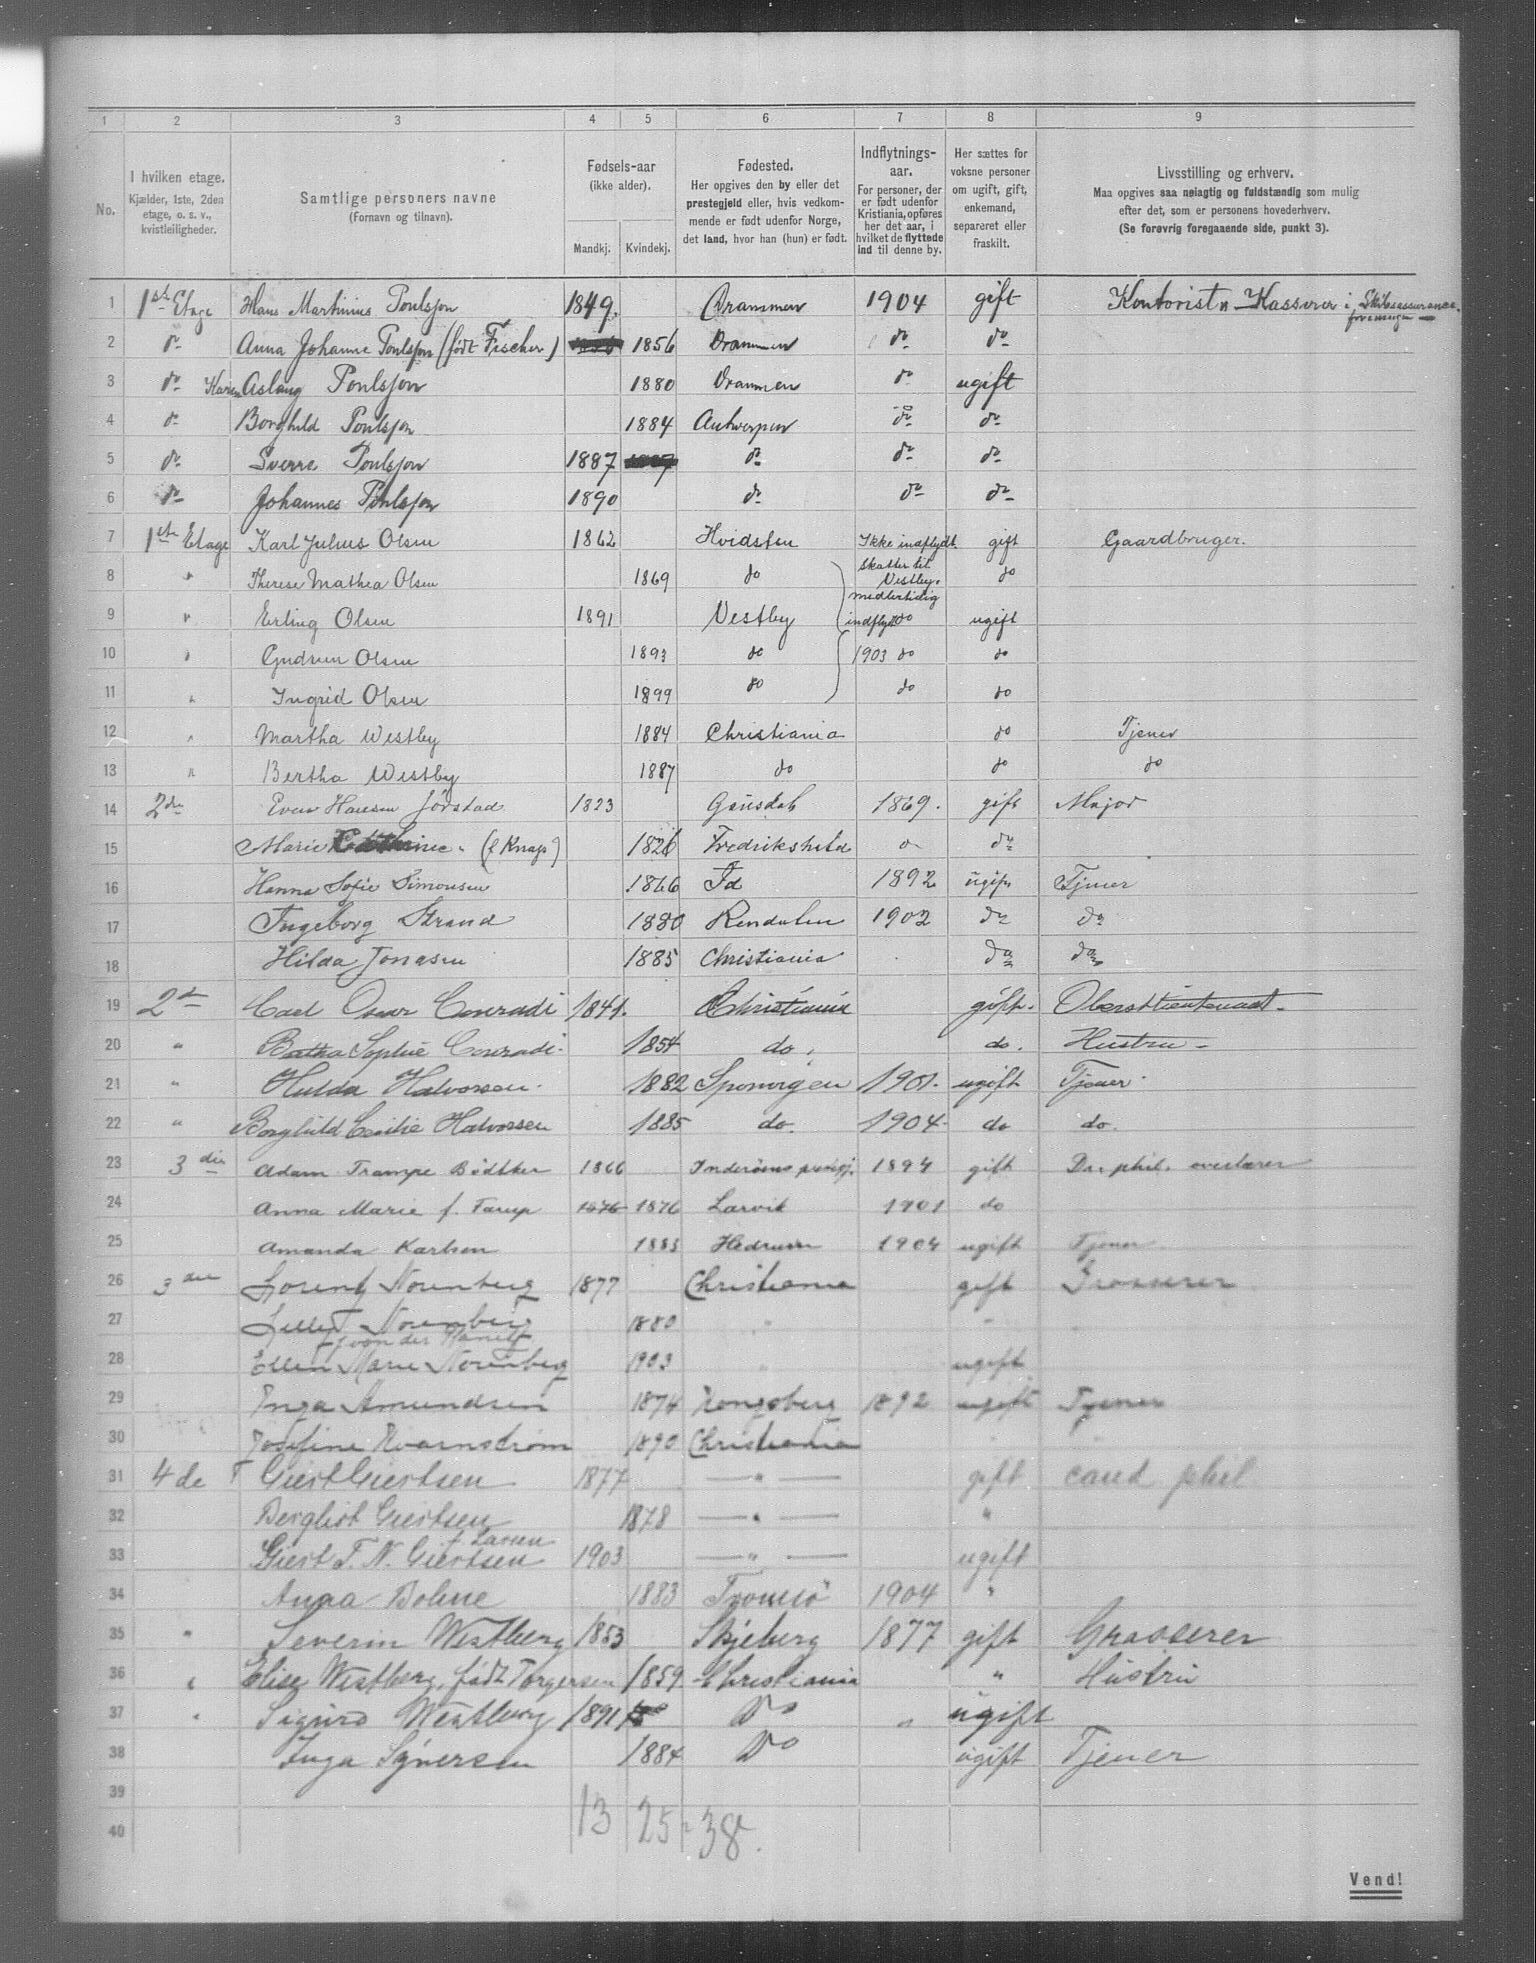 1 2 3 4 5 6 7 8 9
No.
I hvilken etage. Kjælder, 1ste, 2den etage, o. s. v., kvistleiligheder.
Samtlige personers navne (Fornavn og tilnavn).
Fødsels-aar (ikke alder). Mandkj. Kvindekj.
Fødested. Her opgives den by eller det prestegjeld eller, hvis vedkommende er født udenfor Norge, det land, hvor han (hun) er født.
Indflytnings-aar. For personer, der er født udenfor Kristiania, opføres her det aar, i hvilket de flyttede ind til denne by.
Her sættes for voksne personer om ugift, gift, enkemand, separeret eller fraskilt.
Livsstilling og erhverv. Maa opgives saa nøiagtig og fuldstændig som mulig efter det, som er personens hovederhverv. (Se forøvrig foregaaende side, punkt 3).
1 1ste Etage Hans Martinius Poulsson 1849. Drammen 1904 gift Kontorist Kasserer i Skibsassuranceforeningen
2 do Anna Johanne Poulsson (født Fischer) 1856 Drammen do do
3 do Karen Aslaug Poulsson 1880 Drammen do ugift
4 do Borghild Poulsson 1884 Antwerpen do do
5 do Sverre Poulsson 1887 do do do
6 do Johannes Poulsson 1890 do do do
7 1ste Etage Karl Julius Olsen 1862 Hvidsten Ikke indflydt gift Gaardbruger.
8 " Therese Mathea Olsen 1869 do skatter til Vestby. do
9 " Erling Olsen 1891 Vestby medlertidig indflydt do ugift
10 " Gudrun Olsen 1893 do 1903 do do
11 " Ingrid Olsen 1899 do do do
12 " Martha Westby 1884 Christiania do Tjener
13 " Bertha Westby 1887 do do do
14 2den Even Hansen Jørstad 1823 Gausdal 1869. gift Major
15 Marie Cathrine " (f Knap) 1826 Fredrikshald " do
16 Hanna Sofie Simonsen 1866 Id 1892 ugift Tjener
17 Ingeborg Strand 1880 Rendalen 1902 do do
18 Hilda Jonasen 1885 Christiania do do
19 2den Carl Oscar Conradi 1841. Christiania gift. Oberstlieutenant.
20 " Batha Sophie Conradi. 1854 do. do. Hustru
21 " Hulda Halvorsen. 1882 Sponvigen 1901. ugift Tjener.
22 " Borghild Cecilie Halvorsen 1885 do. 1904. do do.
23 3die Adam Trampe Bødtker 1866 Inderøens prestgj. 1894 gift Dr. phil. overlærer
24 Anna Marie f. Tarup 1876 1876 Larvik 1901 do
25 Amanda Karlsen 1883 Hedrum 1904 ugift Tjener
26 3die Lorentz Norenberg 1877 Christiania gift Grosserer
27 Lilly T Norenberg f von der 1880 " "
28 Ellen Marie Norenberg 1903 " ugift
29 Inga Amundsen 1874 Kongsberg 1892 ugift Tjener
30 Josefine Kvarnstrøm 1890 Christiania "
31 4de Giert Giertsen 1877 — " — gift cand phil
32 Bergliot Giertsen f. Larsen 1878 — " — "
33 Giert T. N. Giertsen 1903 — " — ugift
34 Anna Bohne 1883 Tromsö 1904 "
35 " Severin Westberg 1853 Skjeberg 1877 gift Grosserer
36 " Elise Westberg, født Torgersen 1859. Christiania " Hustru
37 " Sigurd Westberg 1891 Do " ugift
38 Inga Syversen 1884 Do ugift Tjener
39
40 13 25 = 38.
Vend!